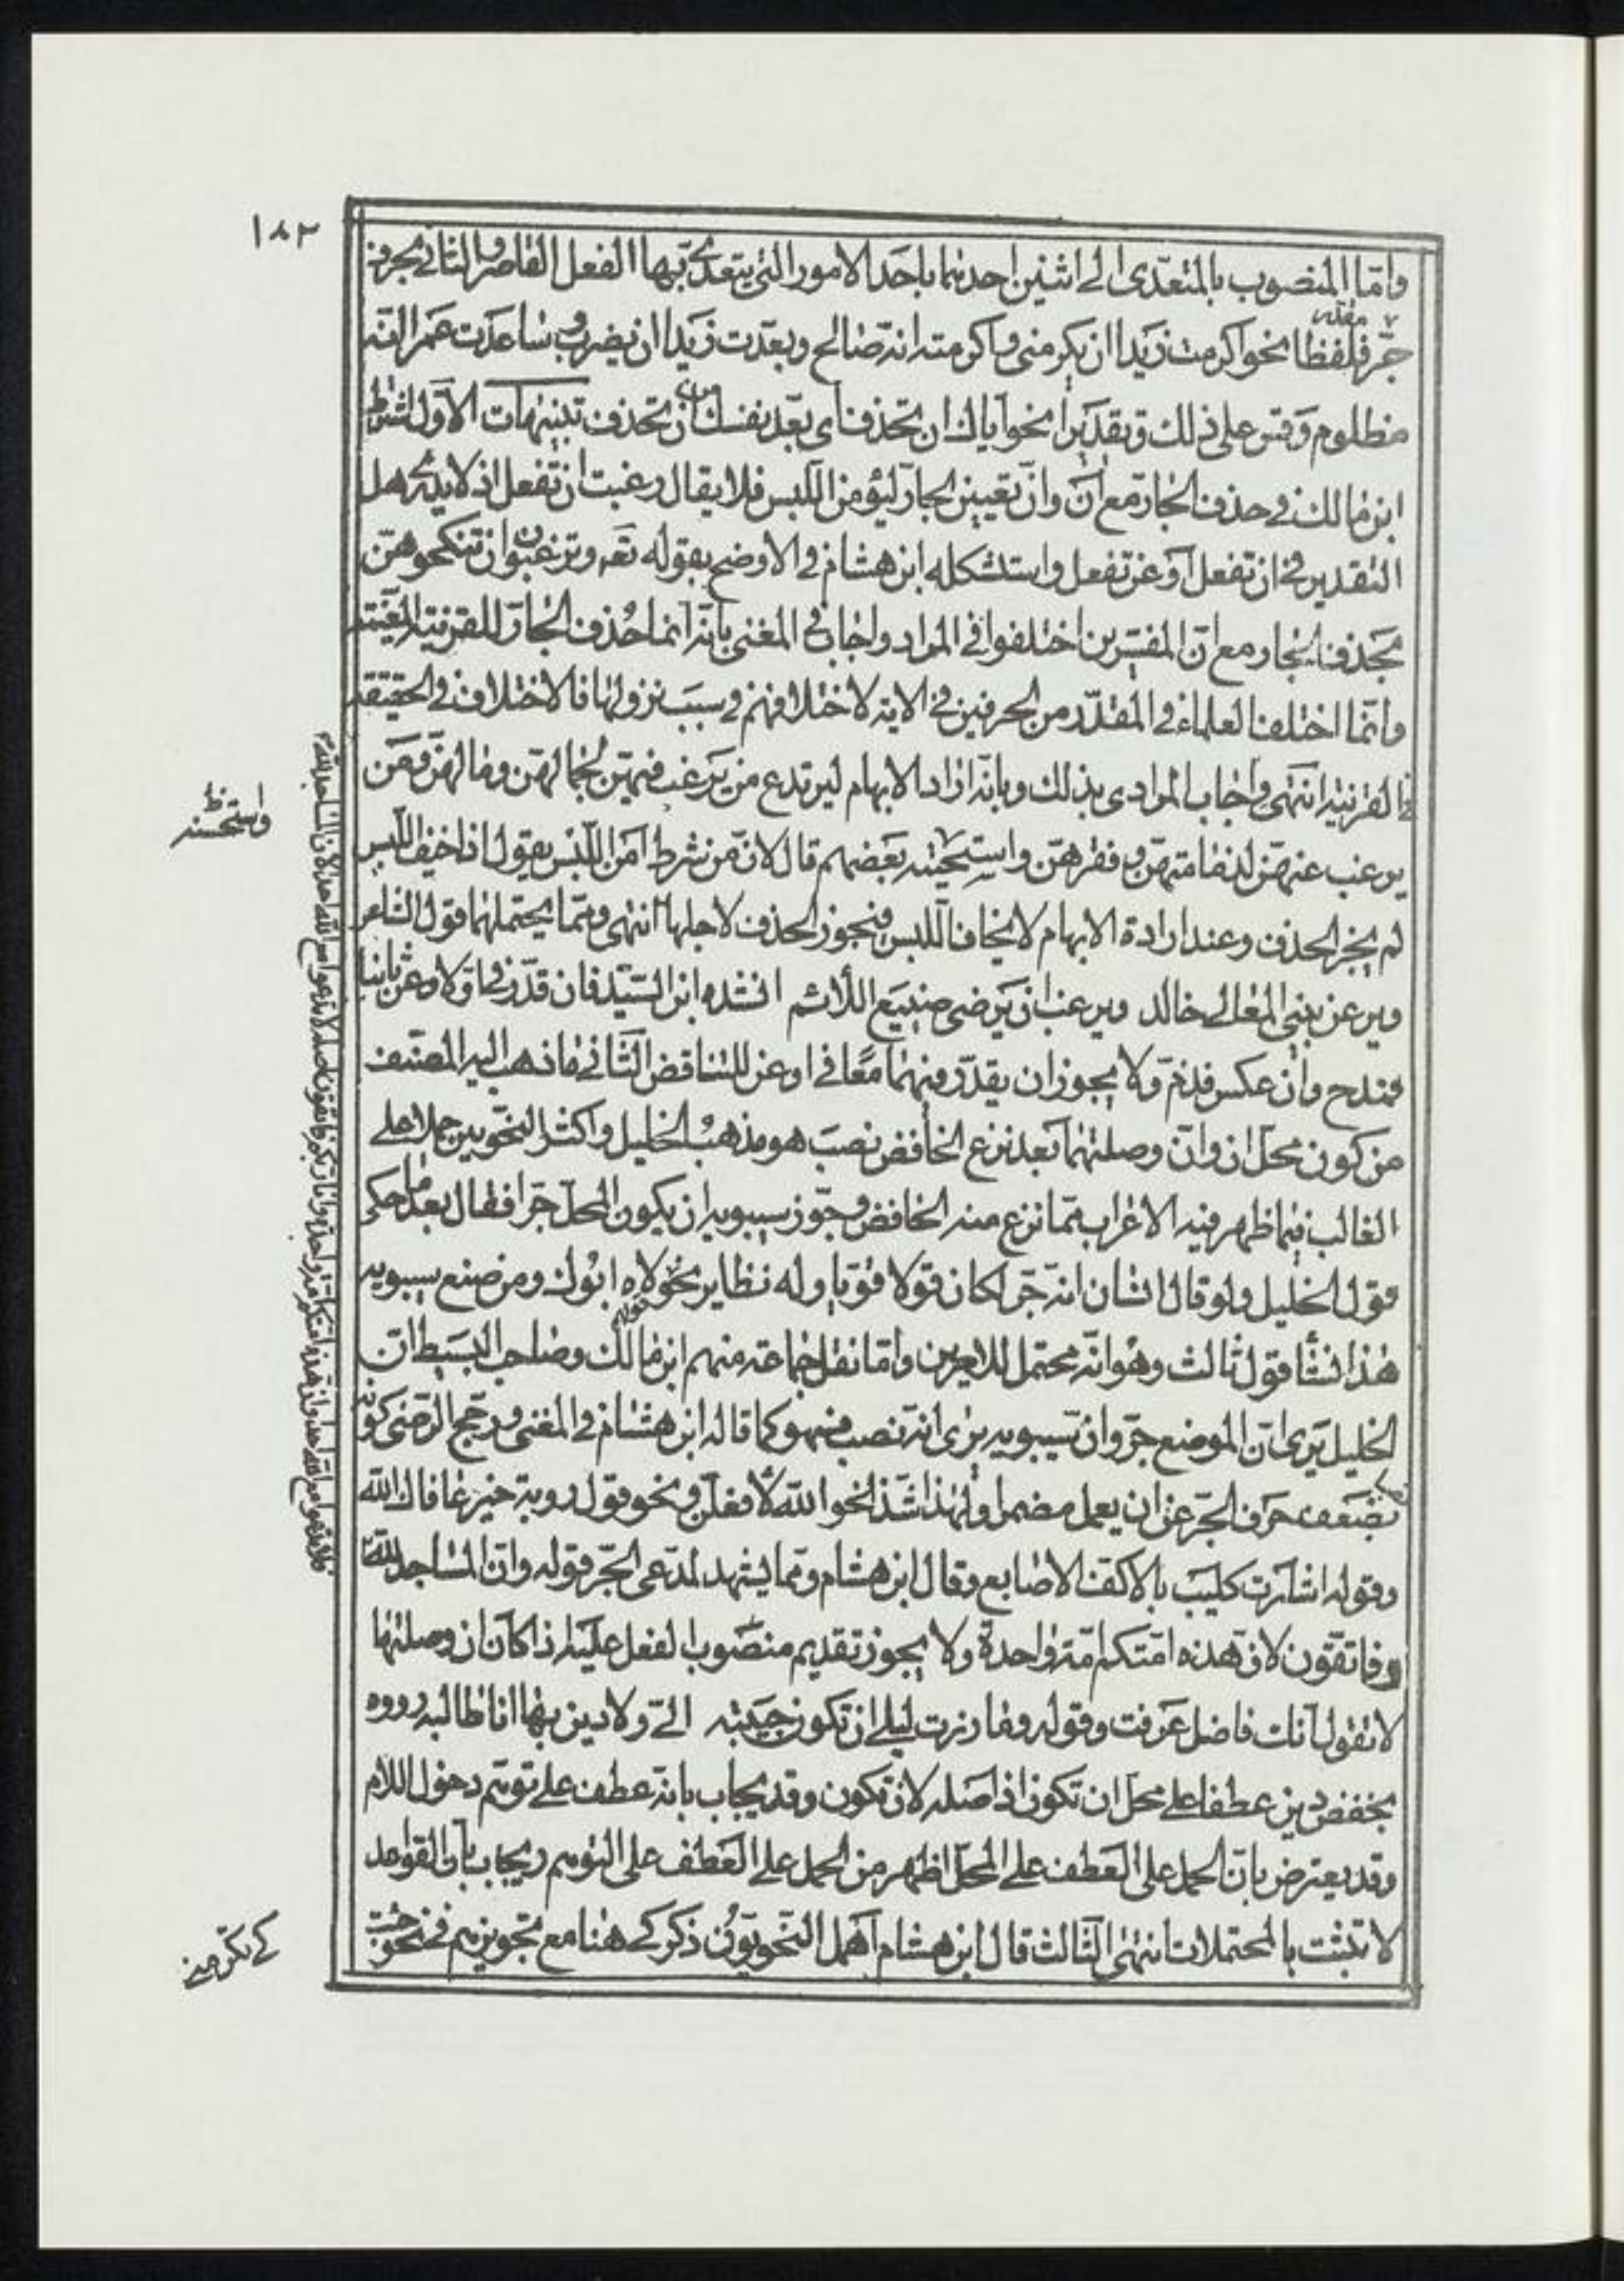 ١٨٢
وامّا المنصوب بالمتعدّى الى اثنين احدهما باحد الامور التى يتعدّى بها الفعل القاصر والثانى بحرف
جرّ لفظا نحو اكرمت زيدا ان يكرمنى واكرمته انه صالح وبعدت زيدا ان يضرب وساعدت عمرا انه
مظلوم وقس على ذلك وتقديرا نحو اياك ان تحذف اى بعّد نفسك من ان تحذف تنبيهات الاوّل اشترط
ابن مالك فى حذف الجار مع انّ وان تعيين الجار ليؤمن اللبس فلا يقال رغبت ان تفعل اذ لا يدرى هل
التقدير فى ان تفعل او عن تفعل واستشكله ابن هشام فى الاوضح بقوله تعه وترغبون ان تنكحوهن
بحذف الجار مع انّ المفسّرين اختلفوا فى المراد واجاب فى المغنى بانه انما حذف الجارّ للقرينة المعيّنة
وانّما اختلف العلماء فى المقدّر من الحرفين فى الاية لاختلافهم فى سبب نزولها فالاختلاف فى الحقيقة
فى القرينة انتهى واجاب المرادى بذلك وبانّه اراد الابهام ليرتدع من يرغب فيهنّ لجمالهنّ ومالهنّ ومن
يرغب عنهنّ لدمامتهنّ وفقرهنّ واستحسنه بعضهم قال لانّ من شرط امن اللبس يقول اذا خيف اللبس
لم يجز الحذف وعند ارادة الابهام لا يخاف اللبس فيجوز الحذف لاجلها انتهى وممّا يحتملهما قول الشاعر
ويرغب ان يبنى المعالى خالد ويرغب ان يرضى صنيع اللأئم انشده ابن السّيد فان قدّر فى اوّلا وعن ثانيا
فمدح وان عكس فذمّ ولا يجوز ان يقدّر فيهما معًا فى او عن للتناقض الثّانى ما ذهب اليه المصنّف
من كون محلّ ان وانّ وصلتهما بعد نزع الخافض نصب هو مذهب الخليل واكثر النحّويين حملا على
الغالب فيما ظهر فيه الاعراب ممّا نزع منه الخافض وجوّز سيبويه ان يكون المحلّ جرّا فقال بعد ما حكى
قول الخليل ولو قال انسان انه جرّ لكان قولا قويّا وله نظاير نحو لاه ابوك ومن صنع سيبويه
هذا نشأ قول ثالث وهو انّه محتمل للامرين وامّا نقل جماعة منهم ابن مالك وصاحب البسيط انّ
الخليل يرى انّ الموضع جرّ وانّ سيبويه يرى انّه نصب فسهو كما قاله ابن هشام فى المغنى ورجح الرضى كونه
لضعف حرف الجرّ عن ان يعمل مضمرا ولهذا شذّ نحو اللّه لأفعلنّ ونحو قول روبة خير عافاك اللّه
وقوله اشارت كليب بالاكفّ الاصابع وقال ابن هشام وممّا يشهد لمدّعى الجرّ قوله وانّ المساجد للّه
وفاتّقون لانّ هذه امّتكم امّة واحدة ولا يجوز تقديم منصوب الفعل عليه اذا كان ان وصلتها
لا تقول انّك فاضل عرفت وقوله وما زرت ليلى ان تكون حبيبة الىّ ولا دين بها انا طالبه رووه
بخفض دين عطفا على محلّ ان تكون اذ اصله لان تكون وقد يجاب بانّه عطف على توهّم دخول اللام
وقد يعترض بانّ الحمل على العطف على المحلّ اظهر من الحمل على العطف على التوهم ويجاب بانّ القواعد
لا تثبت بالمحتملات انتهى الثّالث قال ابن هشام اهمل النحويّون ذكر كى هنا مع تجويزهم فى نحو جئت
واستحسنه ظ
كى تكرمنى